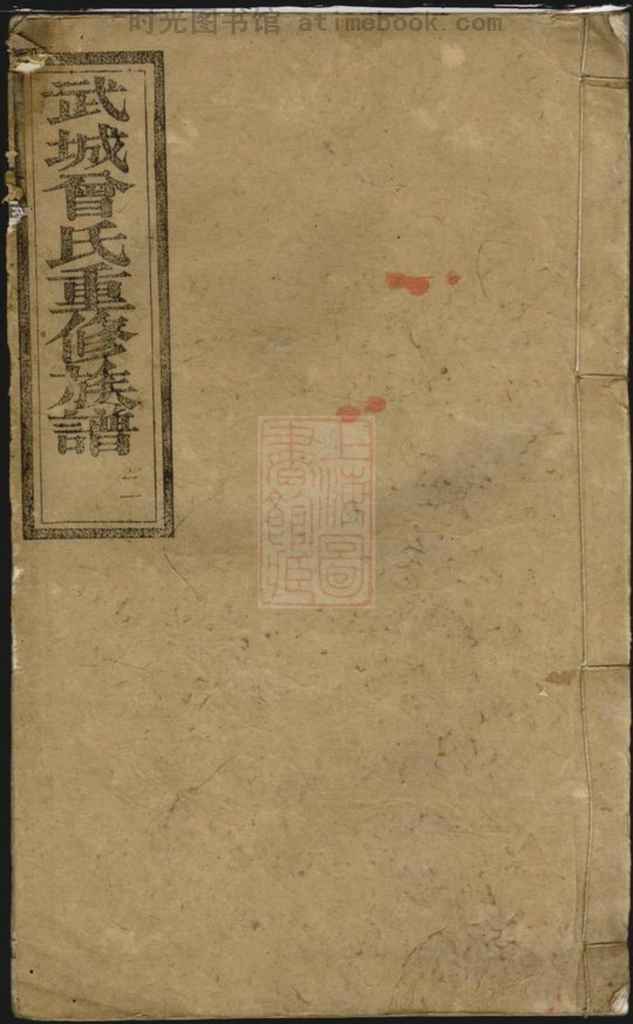 时光图书馆 atimebook.com
武城曾氏重修族譜
上海圖
書館藏